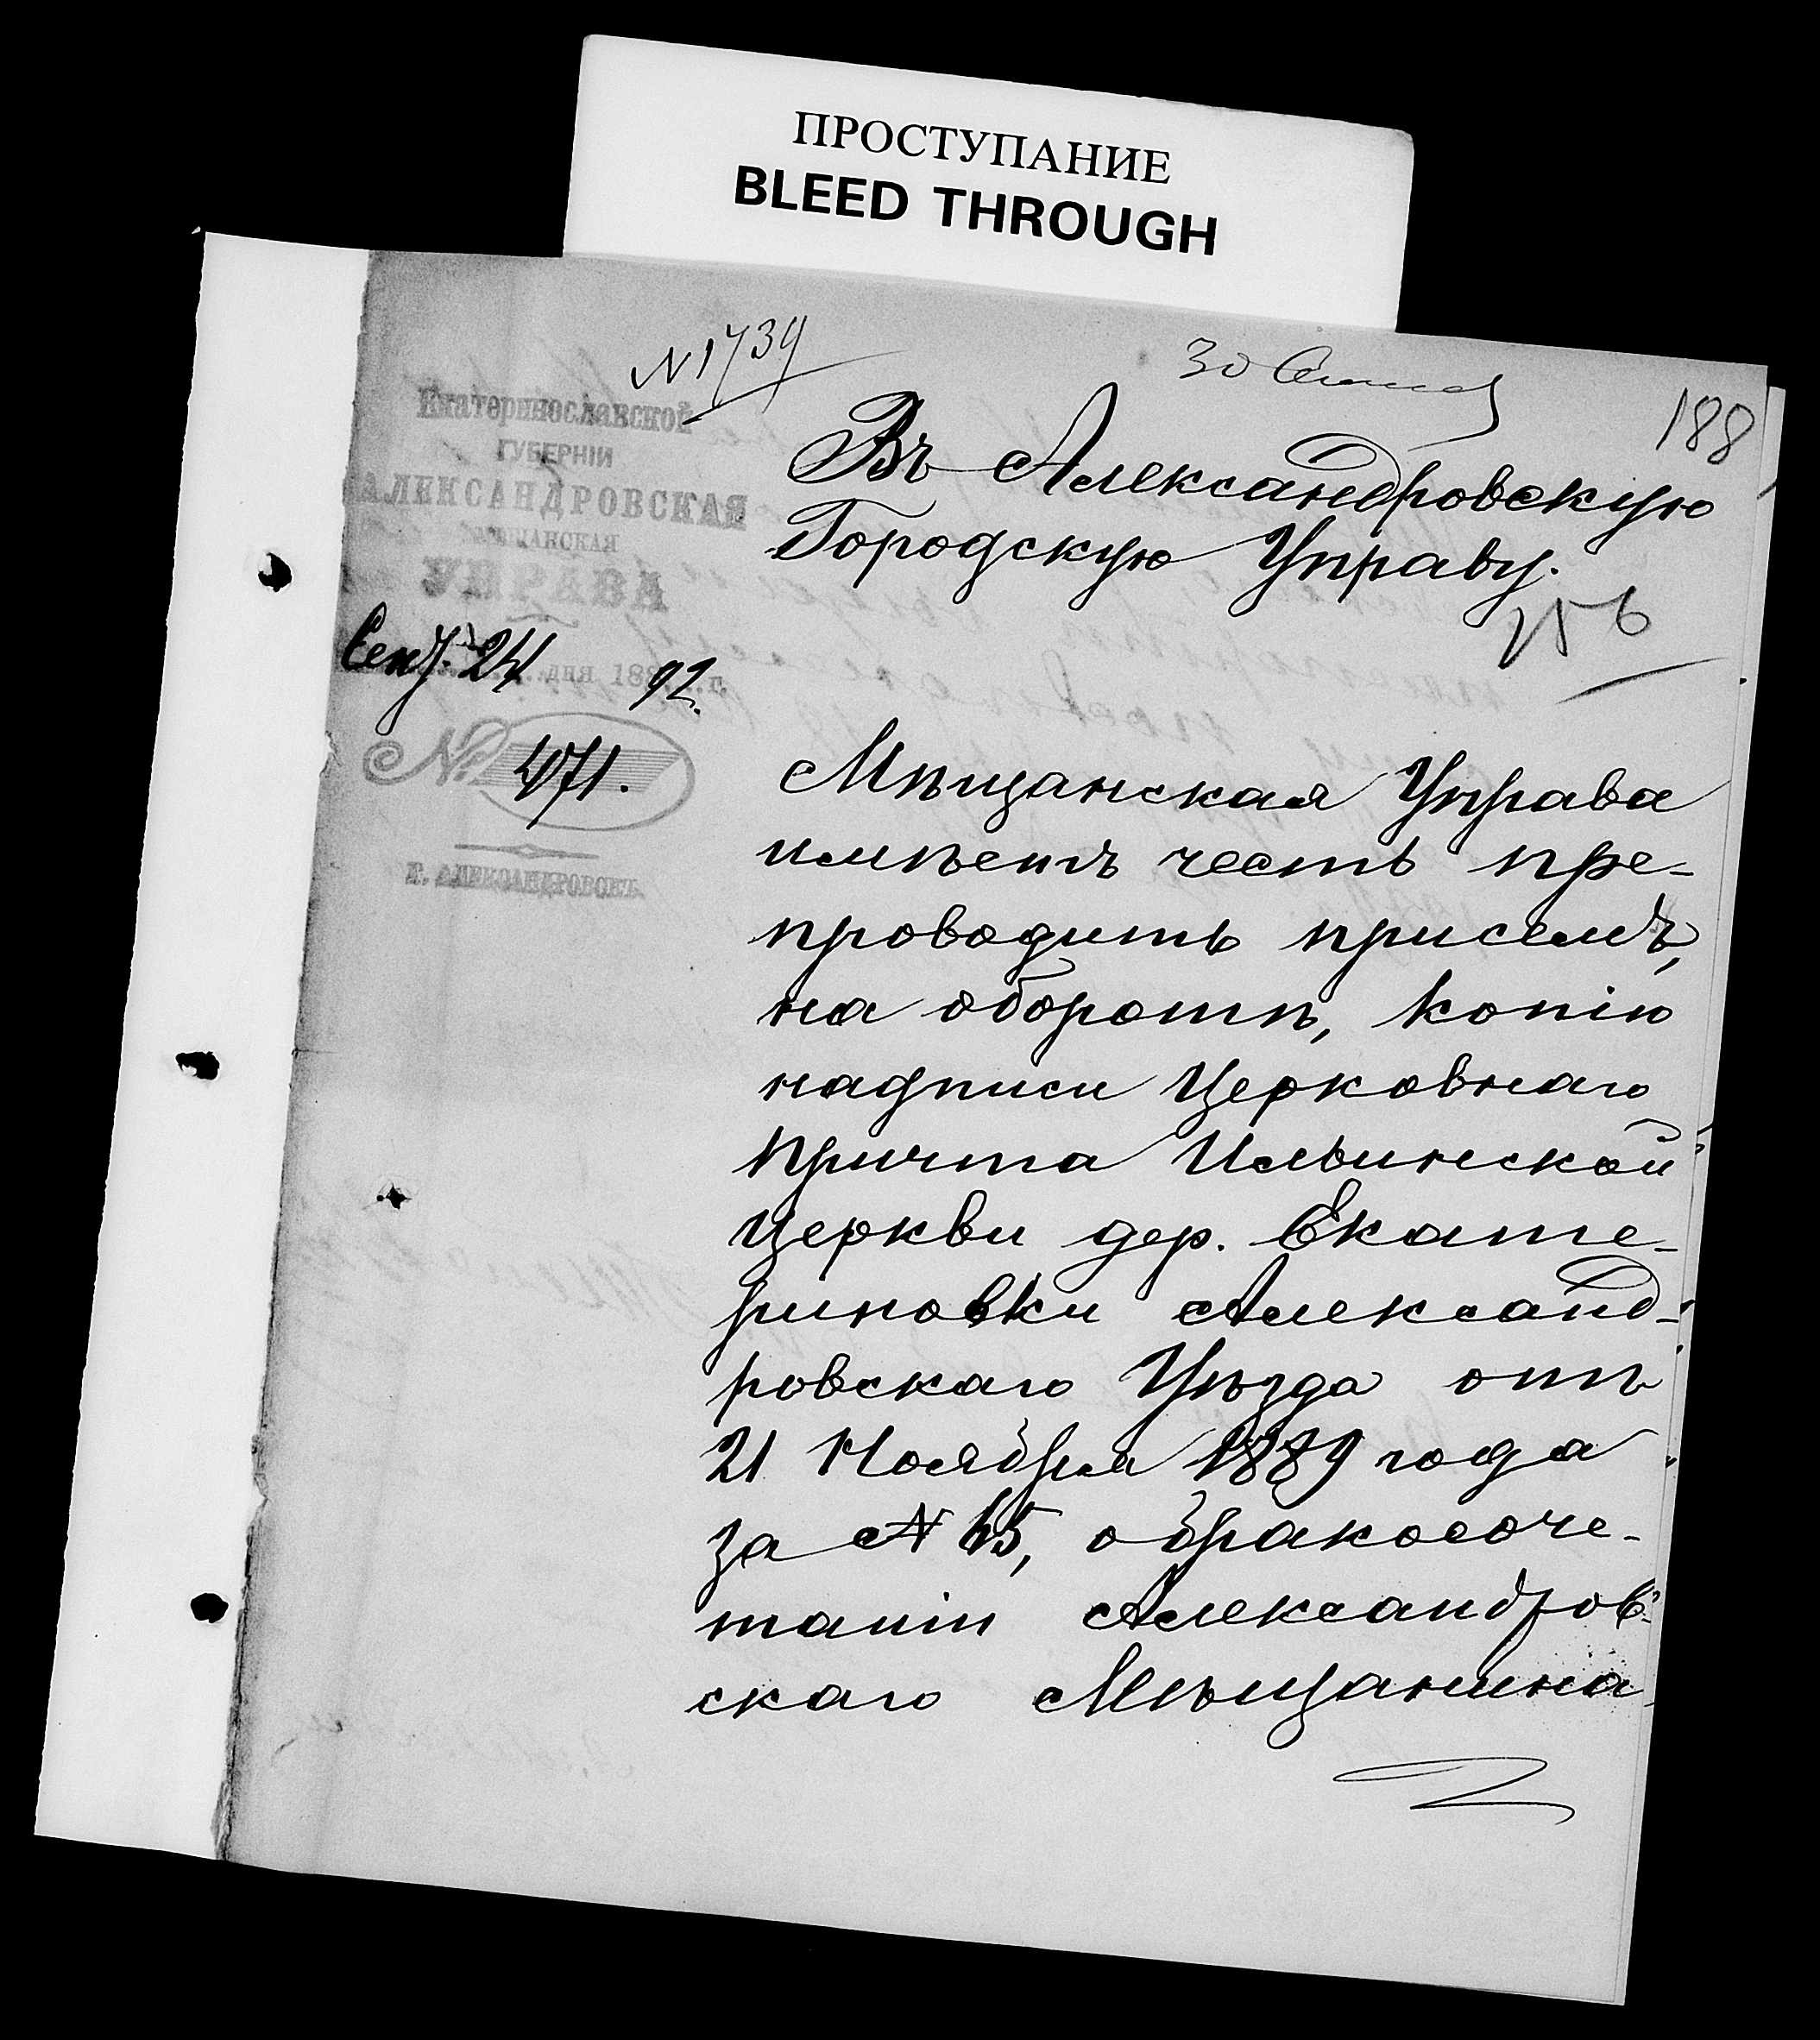 ПРОСТУПАНИЕ
BLEED THROUGH
№ 1739
30 Сент
188
Екатеринославской
ГУБЕРНІИ
АЛЕКСАНДРОВСКАЯ
МѢЩАНСКАЯ
УПРАВА
Сент. 24 дня 1892 г.
№ 471.
Г. АЛЕКСАНДРОВСКЪ
Въ Александровскую
Городскую Управу.
256
Мѣщанская Управа
имѣетъ честь пре-
проводить присемъ,
на оборотѣ, копію
надписи Церковнаго
Причта Ильинской
церкви дер. Екате-
риновки Александ-
ровскаго Уѣзда отъ
21 Ноября 1889 года
за № 65, о бракосоче-
таніи Александров-
скаго Мѣщанина